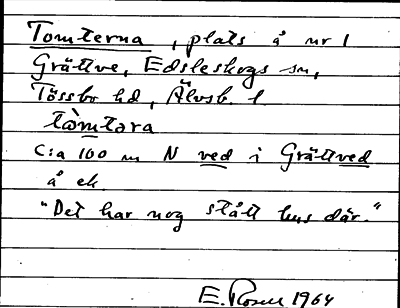 Tomterna, plats å nr 1
Grättve, Edsleskogs sn,
Tössbo hd, Älvsb. l
tòmtara
C:a 100 m N ved i Grättved
å ek.
"Det har nog stått hus där."
E. Rosell 1964